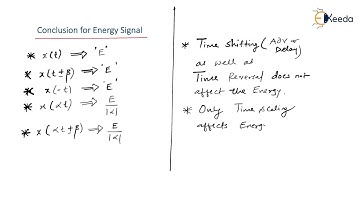 Conclusion for Energy Signal
Ekeeda
* x(t) ⇒ 'E'
* x(t±β) ⇒ 'E'
* x(-t) ⇒ 'E'
* x(αt) ⇒ E/|α|
* x(αt±β) ⇒ E/|α|
* Time shifting (Adv or
Delay)
as well as
Time Reversal does not
affect the Energy.
* Only Time scaling
affects Energy